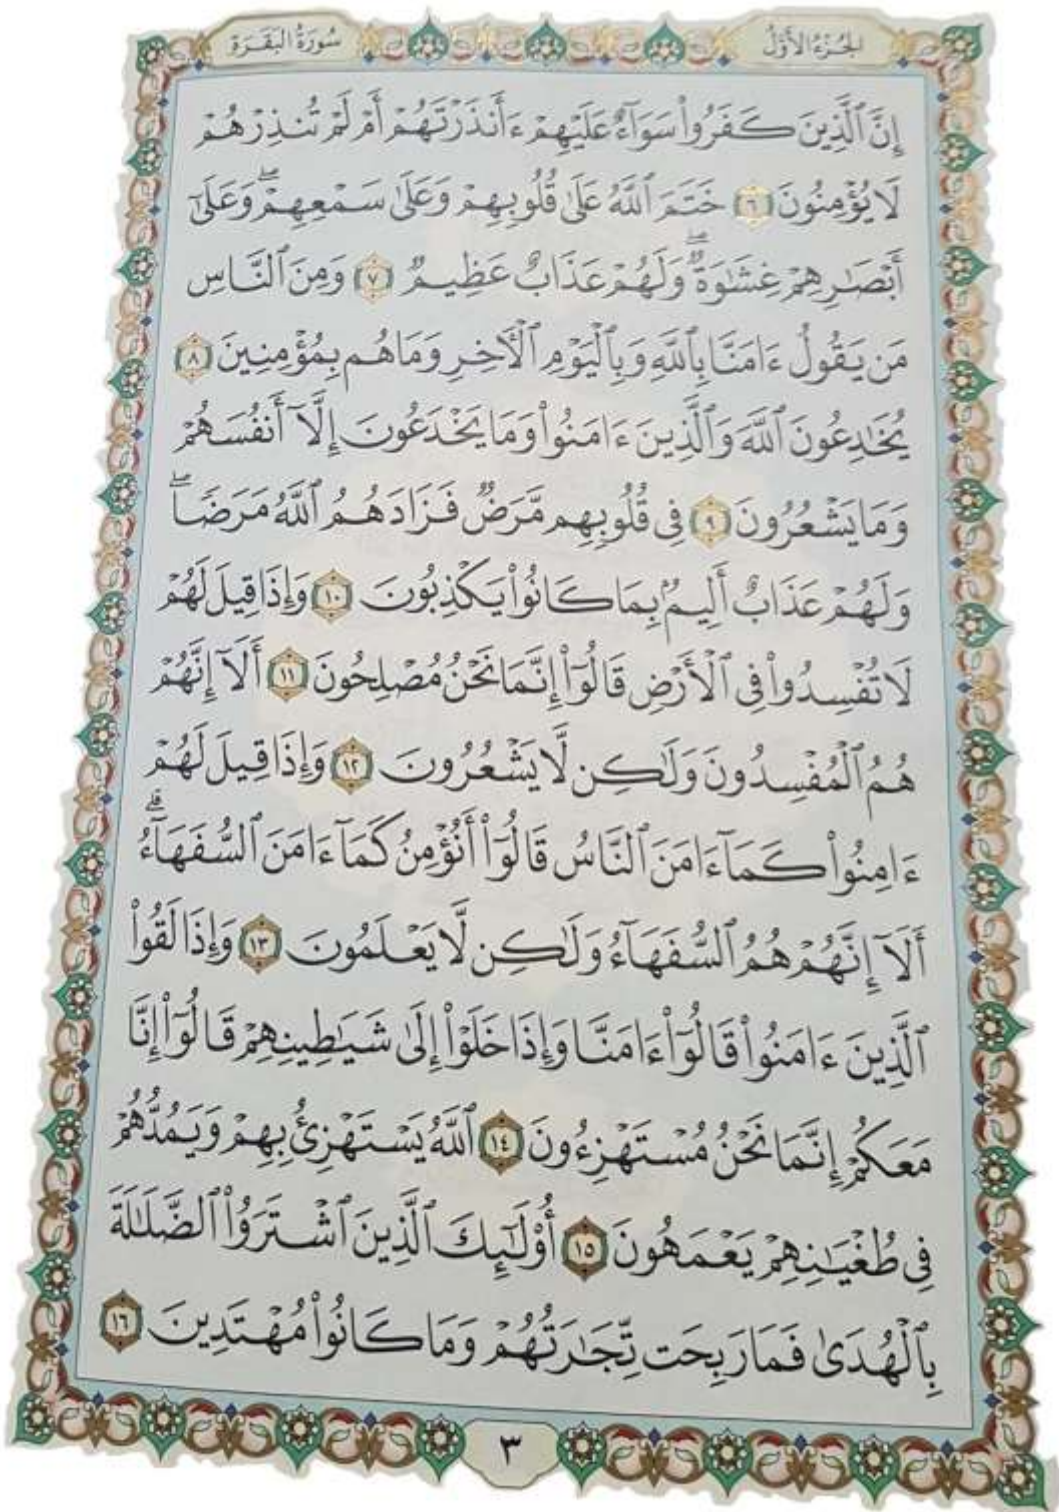 الجزء الأول
سورة البقرة
إِنَّ ٱلَّذِينَ كَفَرُوا۟ سَوَآءٌ عَلَيْهِمْ ءَأَنذَرْتَهُمْ أَمْ لَمْ تُنذِرْهُمْ
لَا يُؤْمِنُونَ ٦ خَتَمَ ٱللَّهُ عَلَىٰ قُلُوبِهِمْ وَعَلَىٰ سَمْعِهِمْ ۖ وَعَلَىٰٓ
أَبْصَٰرِهِمْ غِشَٰوَةٌ ۖ وَلَهُمْ عَذَابٌ عَظِيمٌ ٧ وَمِنَ ٱلنَّاسِ
مَن يَقُولُ ءَامَنَّا بِٱللَّهِ وَبِٱلْيَوْمِ ٱلْـَٔاخِرِ وَمَا هُم بِمُؤْمِنِينَ ٨
يُخَٰدِعُونَ ٱللَّهَ وَٱلَّذِينَ ءَامَنُوا۟ وَمَا يَخْدَعُونَ إِلَّآ أَنفُسَهُمْ
وَمَا يَشْعُرُونَ ٩ فِى قُلُوبِهِم مَّرَضٌ فَزَادَهُمُ ٱللَّهُ مَرَضًا ۖ
وَلَهُمْ عَذَابٌ أَلِيمٌۢ بِمَا كَانُوا۟ يَكْذِبُونَ ١٠ وَإِذَا قِيلَ لَهُمْ
لَا تُفْسِدُوا۟ فِى ٱلْأَرْضِ قَالُوٓا۟ إِنَّمَا نَحْنُ مُصْلِحُونَ ١١ أَلَآ إِنَّهُمْ
هُمُ ٱلْمُفْسِدُونَ وَلَٰكِن لَّا يَشْعُرُونَ ١٢ وَإِذَا قِيلَ لَهُمْ
ءَامِنُوا۟ كَمَآ ءَامَنَ ٱلنَّاسُ قَالُوٓا۟ أَنُؤْمِنُ كَمَآ ءَامَنَ ٱلسُّفَهَآءُ ۗ
أَلَآ إِنَّهُمْ هُمُ ٱلسُّفَهَآءُ وَلَٰكِن لَّا يَعْلَمُونَ ١٣ وَإِذَا لَقُوا۟
ٱلَّذِينَ ءَامَنُوا۟ قَالُوٓا۟ ءَامَنَّا وَإِذَا خَلَوْا۟ إِلَىٰ شَيَٰطِينِهِمْ قَالُوٓا۟ إِنَّا
مَعَكُمْ إِنَّمَا نَحْنُ مُسْتَهْزِءُونَ ١٤ ٱللَّهُ يَسْتَهْزِئُ بِهِمْ وَيَمُدُّهُمْ
فِى طُغْيَٰنِهِمْ يَعْمَهُونَ ١٥ أُو۟لَٰٓئِكَ ٱلَّذِينَ ٱشْتَرَوُا۟ ٱلضَّلَٰلَةَ
بِٱلْهُدَىٰ فَمَا رَبِحَت تِّجَٰرَتُهُمْ وَمَا كَانُوا۟ مُهْتَدِينَ ١٦
٣